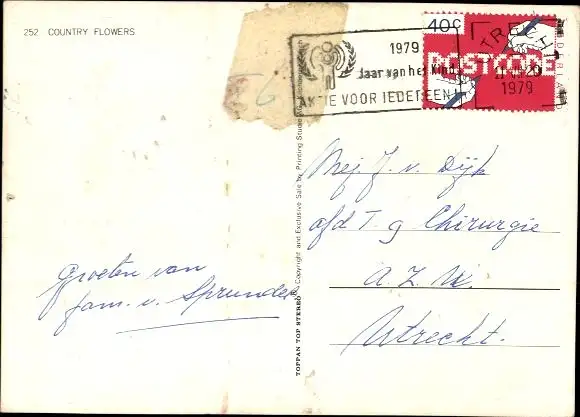 252 COUNTRY FLOWERS
1979
Jaar van het Kind
AKTIE VOOR IEDEREEN
40c
NEDERLAND
POSTCODE
UTRECHT
1979
Mej. J. v. Dijk
afd T g Chirurgie
A. Z. U.
Utrecht.
Groeten van
fam. v. Sprundel
TOPPAN TOP STEREO ® Copyright and Exclusive Sale by Printing